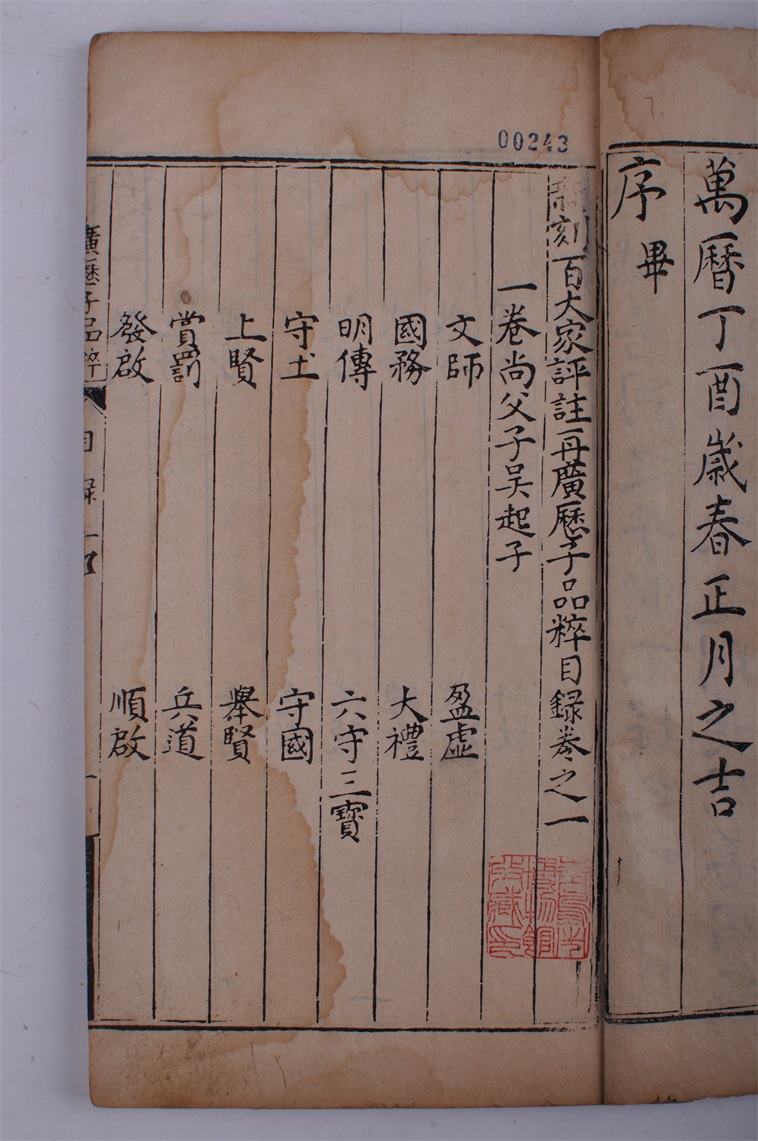 萬曆丁酉歲春正月之吉
序畢
00243
刻百大家評註再廣歷子品粹目錄卷之一
一卷尚父子吳起子
文師 盈虛
國務 大禮
明傳 六守三寶
守土 守國
上賢 舉賢
賞罰 兵道
發啟 順啟
廣歷子品粹 目錄 一